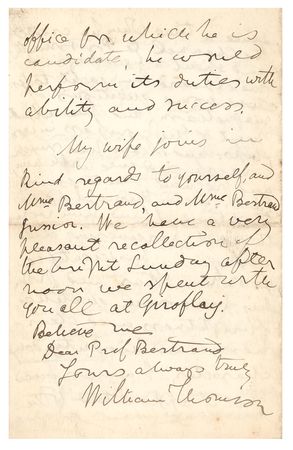 office for which he is
candidate, he would
perform its duties with
ability and success.
My wife joins in
kind regards to yourself, and
Mme Bertrand, and Mme Bertrand
junior. We have a very
pleasant recollection of
the bright Sunday after
noon we spent with
you all at Viroflay.
Believe me
Dear Prof Bertrand
Yours always truly
William Thomson